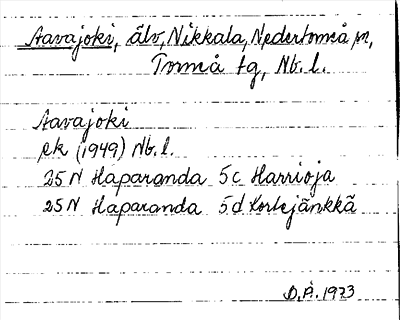 Aavajoki, älv, Nikkala, Nedertorneå sn,
Torneå tg, Nb. l.
Aavajoki
ek (1949) Nb. l.
25 N Haparanda 5c Harrioja
25 N Haparanda 5d Kortejänkkä
D.P. 1973